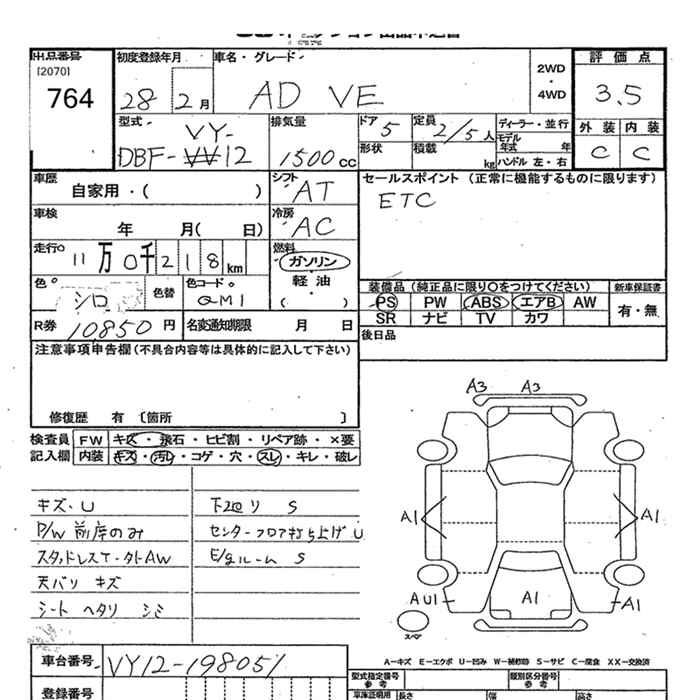 出品番号 初度登録年月 車名・グレード 評価点
[2070]
764 28 2月 AD VE 2WD 4WD 3.5
型式 排気量 ドア 5 定員 2/5人 ディーラー・並行 外装 内装
VY- モデル年式 年
DBF-VW12 1500cc 形状 積載 kg ハンドル 左・右 C C
車歴 シフト セールスポイント (正常に機能するものに限ります)
自家用・( ) AT ETC
車検 冷房
年 月( 日) AC
走行 11万0千218km 燃料
ガソリン
色 色替 色コード 軽油 装備品 (純正品に限り○をつけてください) 新車保証書
シロ QM1 ( ) PS PW ABS エアB AW 有・無
SR ナビ TV カワ
R券 10,850円 名変通知期限 月 日 後日品
注意事項申告欄 (不具合内容等は具体的に記入して下さい)
修復歴 有 〔箇所 〕
検査員 FW キズ・飛石・ヒビ割・リペア跡・×要
記入欄 内装 キズ・汚レ・コゲ・穴・スレ・キレ・破レ
A3 A3
キズ・U 下廻リ S
P/W 前席のみ センターフロア打ち上げ U
スタッドレスT・タトAW E/gルーム S
天バリ キズ
シート ヘタリ シミ
A1 A1
AU1 A1 A1
スペア
A-キズ E-エクボ U-凹み W-補修跡 S-サビ C-腐食 XX-交換済
車台番号 VY12-198051
登録番号 型式指定番号 参考 類別区分番号 参考
車庫証明用 長さ 幅 高さ